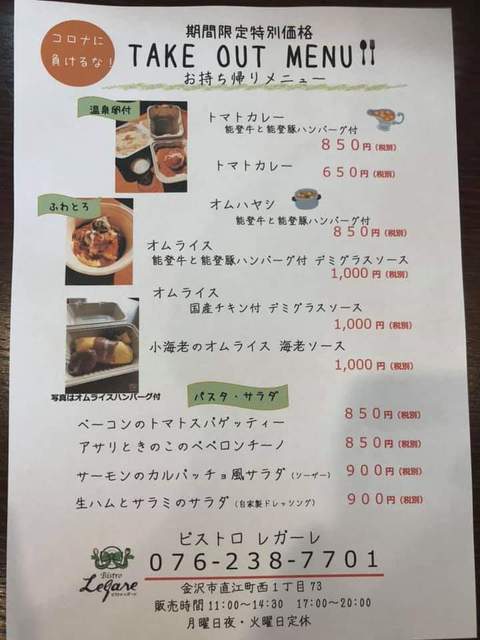 コロナに
負けるな!
期間限定特別価格
TAKE OUT MENU
お持ち帰りメニュー
温泉卵付
トマトカレー
能登牛と能登豚ハンバーグ付
850円(税別)
トマトカレー 650円(税別)
ふわとろ
オムハヤシ
能登牛と能登豚ハンバーグ付
850円(税別)
オムライス
能登牛と能登豚ハンバーグ付 デミグラスソース
1,000円(税別)
オムライス
国産チキン付 デミグラスソース
1,000円(税別)
小海老のオムライス 海老ソース
1,000円(税別)
写真はオムライスハンバーグ付
パスタ・サラダ
ベーコンのトマトスパゲッティー 850円(税別)
アサリときのこのペペロンチーノ 850円(税別)
サーモンのカルパッチョ風サラダ(シーザー) 900円(税別)
生ハムとサラミのサラダ(自家製ドレッシング) 900円(税別)
ビストロ レガーレ
076-238-7701
Bistro
Legare
金沢市直江町西1丁目73
販売時間11:00~14:30 17:00~20:00
月曜日夜・火曜日定休